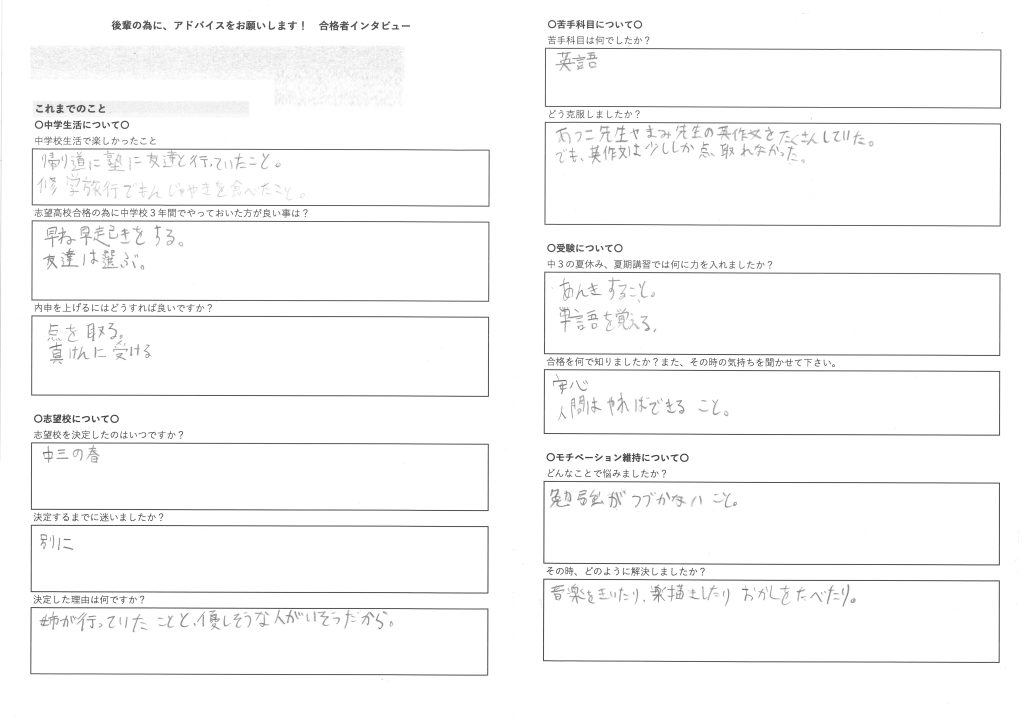 後輩の為に、アドバイスをお願いします！　合格者インタビュー
これまでのこと
〇中学生活について〇
中学校生活で楽しかったこと
帰り道に塾に友達と行っていたこと。
修学旅行でもんじゃやきを食べたこと。
志望高校合格の為に中学校３年間でやっておいた方が良い事は？
早ね早起きをする。
友達は選ぶ。
内申を上げるにはどうすれば良いですか？
点を取る。
真けんに受ける
〇志望校について〇
志望校を決定したのはいつですか？
中三の春
決定するまでに迷いましたか？
別に
決定した理由は何ですか？
姉が行っていたことと、優しそうな人がいそうだから。
〇苦手科目について〇
苦手科目は何でしたか？
英語
どう克服しましたか？
あつこ先生やまみ先生の英作文をたくさんしていた。
でも、英作文は少ししか点取れなかった。
〇受験について〇
中３の夏休み、夏期講習では何に力を入れましたか？
あんきすること。
単語を覚える。
合格を何で知りましたか？また、その時の気持ちを聞かせて下さい。
安心
人間はやればできること。
〇モチベーション維持について〇
どんなことで悩みましたか？
勉強がつづかないこと。
その時、どのように解決しましたか？
音楽をきいたり、楽描きしたりおかしをたべたり。